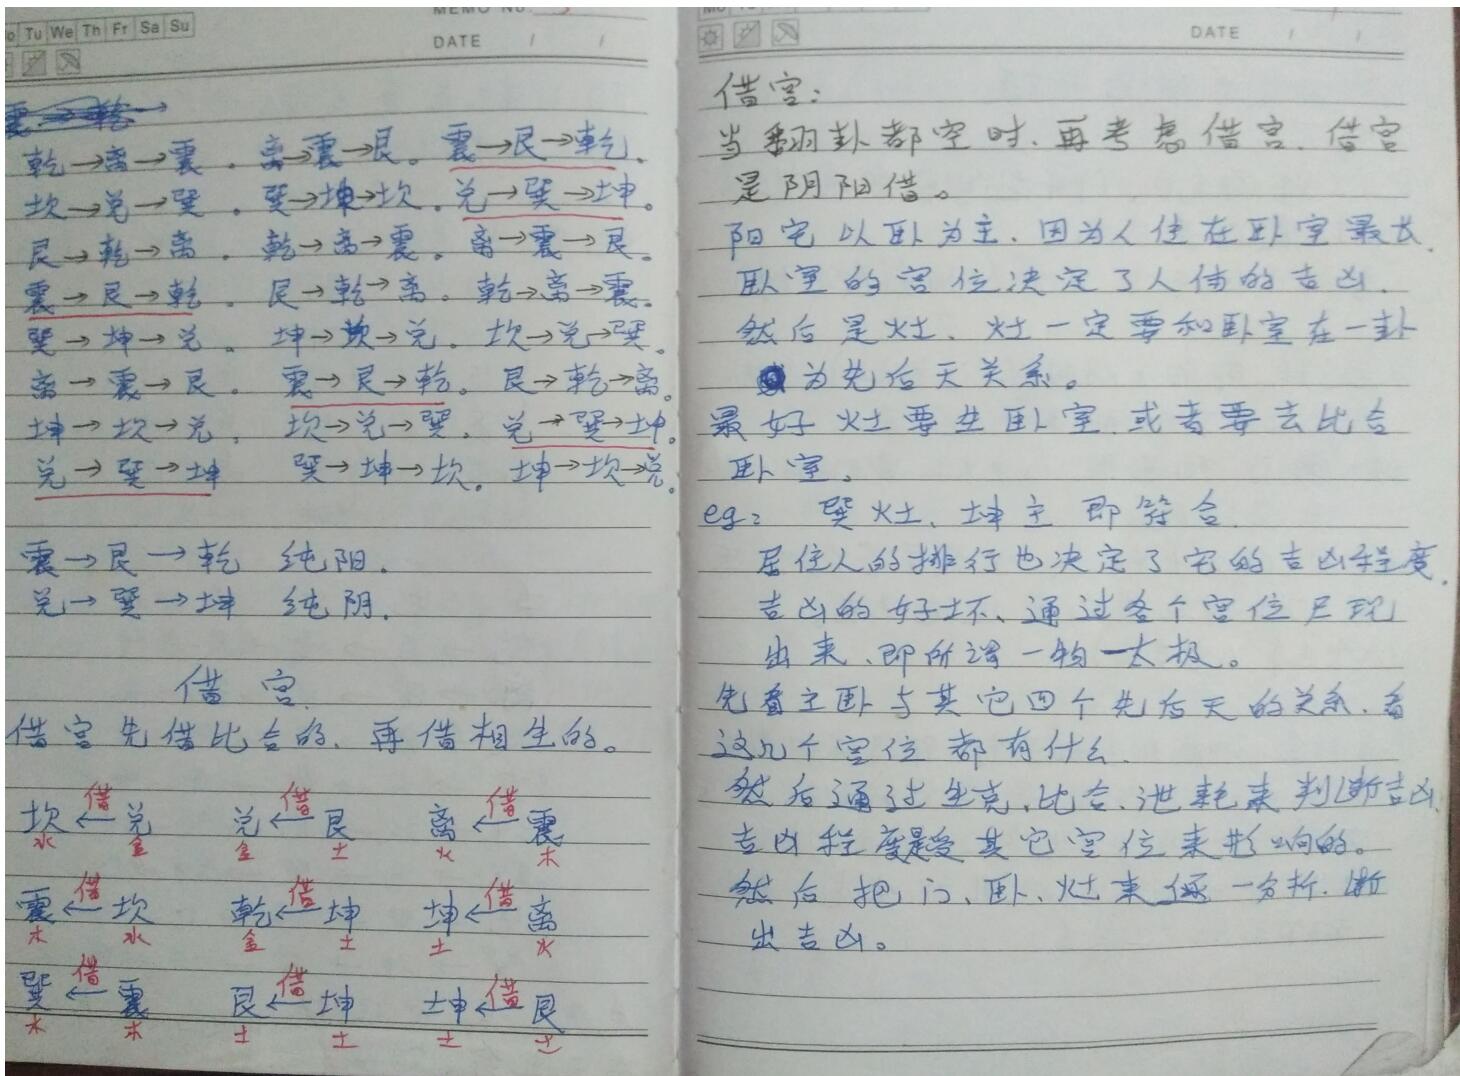 MEMO No.
Tu We Th Fr Sa Su
DATE / /
乾→离→震. 离→震→艮. 震→艮→乾.
坎→兑→巽. 巽→坤→坎. 兑→巽→坤.
艮→乾→离. 乾→离→震. 离→震→艮.
震→艮→乾. 艮→乾→离. 乾→离→震.
巽→坤→兑. 坤→坎→兑. 坎→兑→巽.
离→震→艮. 震→艮→乾. 艮→乾→离.
坤→坎→兑. 坎→兑→巽. 兑→巽→坤.
兑→巽→坤 巽→坤→坎. 坤→坎→兑.
震→艮→乾 纯阳.
兑→巽→坤 纯阴.
借宫.
借宫先借比合的、再借相生的。
借 借 借
坎←兑 兑←艮 离←震
水 金 金 土 火 木
借 借 借
震←坎 乾←坤 坤←离
木 水 金 土 土 火
借 借 借
巽←震 艮←坤 坤←艮
木 木 土 土 土 土
DATE / /
借宫:
当翻卦都空时、再考虑借宫. 借宫
是阴阳借。
阳宅以卧为主、因为人住在卧室最长.
卧室的宫位决定了人体的吉凶.
然后是灶、灶一定要和卧室在一卦
为先后天关系。
最好灶要生卧室.或者要去比合
卧室。
eg: 巽灶、坤主即符合.
居住人的排行也决定了宅的吉凶程度.
吉凶的好坏、通过各个宫位反现
出来、即所谓一物一太极。
先看主卧与其它四个先后天的关系.看
这几个宫位都有什么.
然后通过生克、比合、泄耗来判断吉凶.
吉凶程度是受其它宫位来影响的。
然后把门、卧、灶来逐一分析.断
出吉凶。